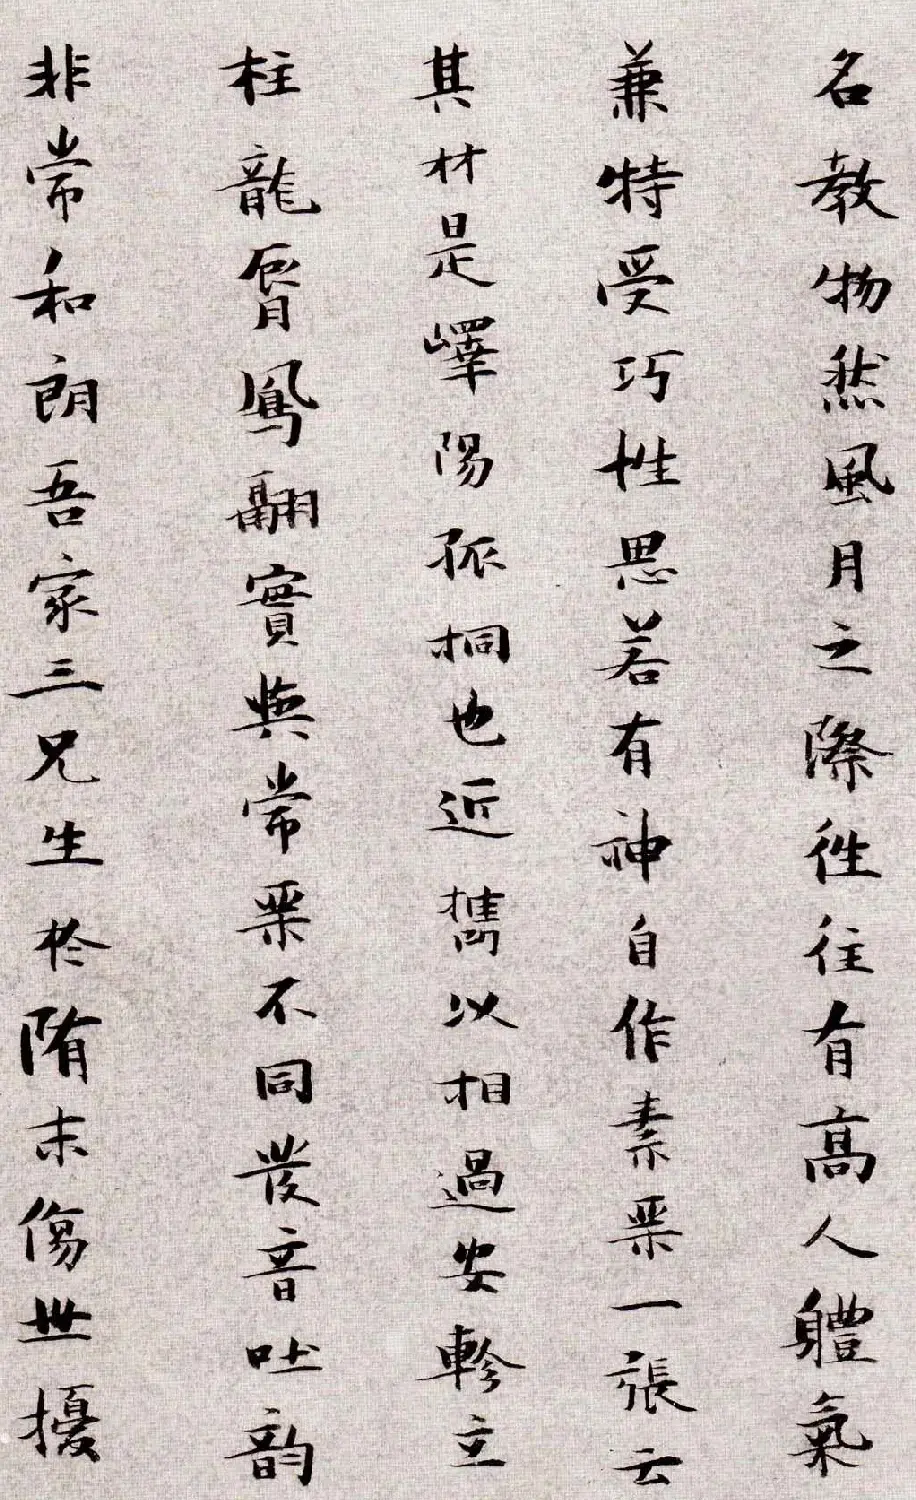 名教物然風月之際徃往有高人軆氣
兼特受巧性思若有神自作素琹一張云
其材是嶧陽孤桐也近攜以相過安軫立
柱龍脣鳳翮實與常琹不同發音吐韵
非常和朗吾家三兄生於隋末傷世擾